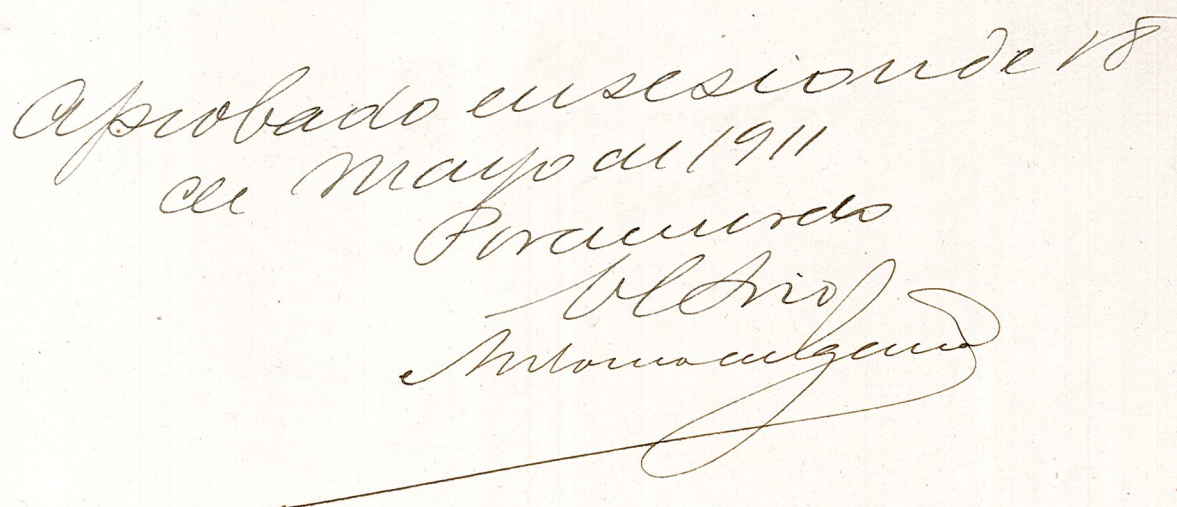 Aprobado en sesion de 18
de Mayo de 1911
Por acuerdo
El Srio
Antonio